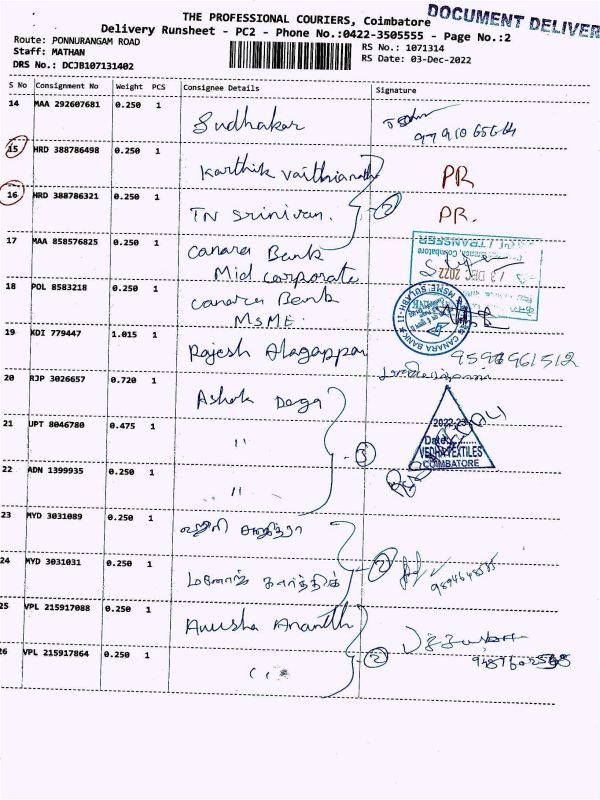 THE PROFESSIONAL COURIERS, Coimbatore
DOCUMENT DELIVER
Delivery Runsheet - PC2 - Phone No.:0422-3505555 - Page No.:2
Route: PONNURANGAM ROAD
RS No.: 1071314
Staff: MATHAN
RS Date: 03-Dec-2022
DRS No.: DCJB107131402
S No Consignment No Weight PCS Consignee Details Signature
14 MAA 292607681 0.250 1 Sudhakar
15 HRD 388786498 0.250 1 Karthik Vaithianathan PR
16 HRD 388786321 0.250 1 TN Srinivan. 2 PR.
17 MAA 858576825 0.250 1 Canara Bank
Mid Corporate
TRANSFER
13 DEC 2022
18 POL 8583218 0.250 1 Canara Bank
MSME
CANARA BANK
19 KDI 779447 1.015 1 Rajesh Alagappan
20 RJP 3026657 0.720 1 Ashok Daga
21 UPT 8046780 0.475 1 "
3
2022-23
Date:
VEDHA TEXTILES
COIMBATORE
22 ADN 1399935 0.250 1 "
23 MYD 3031089 0.250 1
24 MYD 3031031 0.250 1 மனோஜ் கார்த்திக் 2
25 VPL 215917088 0.250 1 Anusha Ananth
26 VPL 215917864 0.250 1 " 2